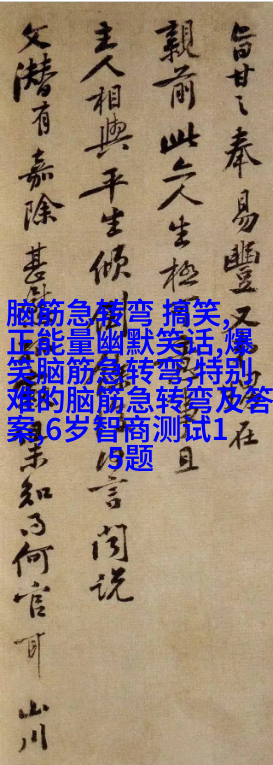 旨甘之奉易豐又在
親前此亦人生極且
主人相與平生傾倒言闻說
文潛有嘉除甚果知得何官耳 山川
脑筋急转弯 搞笑,
正能量幽默笑话,爆
笑脑筋急转弯,特别
难的脑筋急转弯及答
案16岁智商测试1
5题